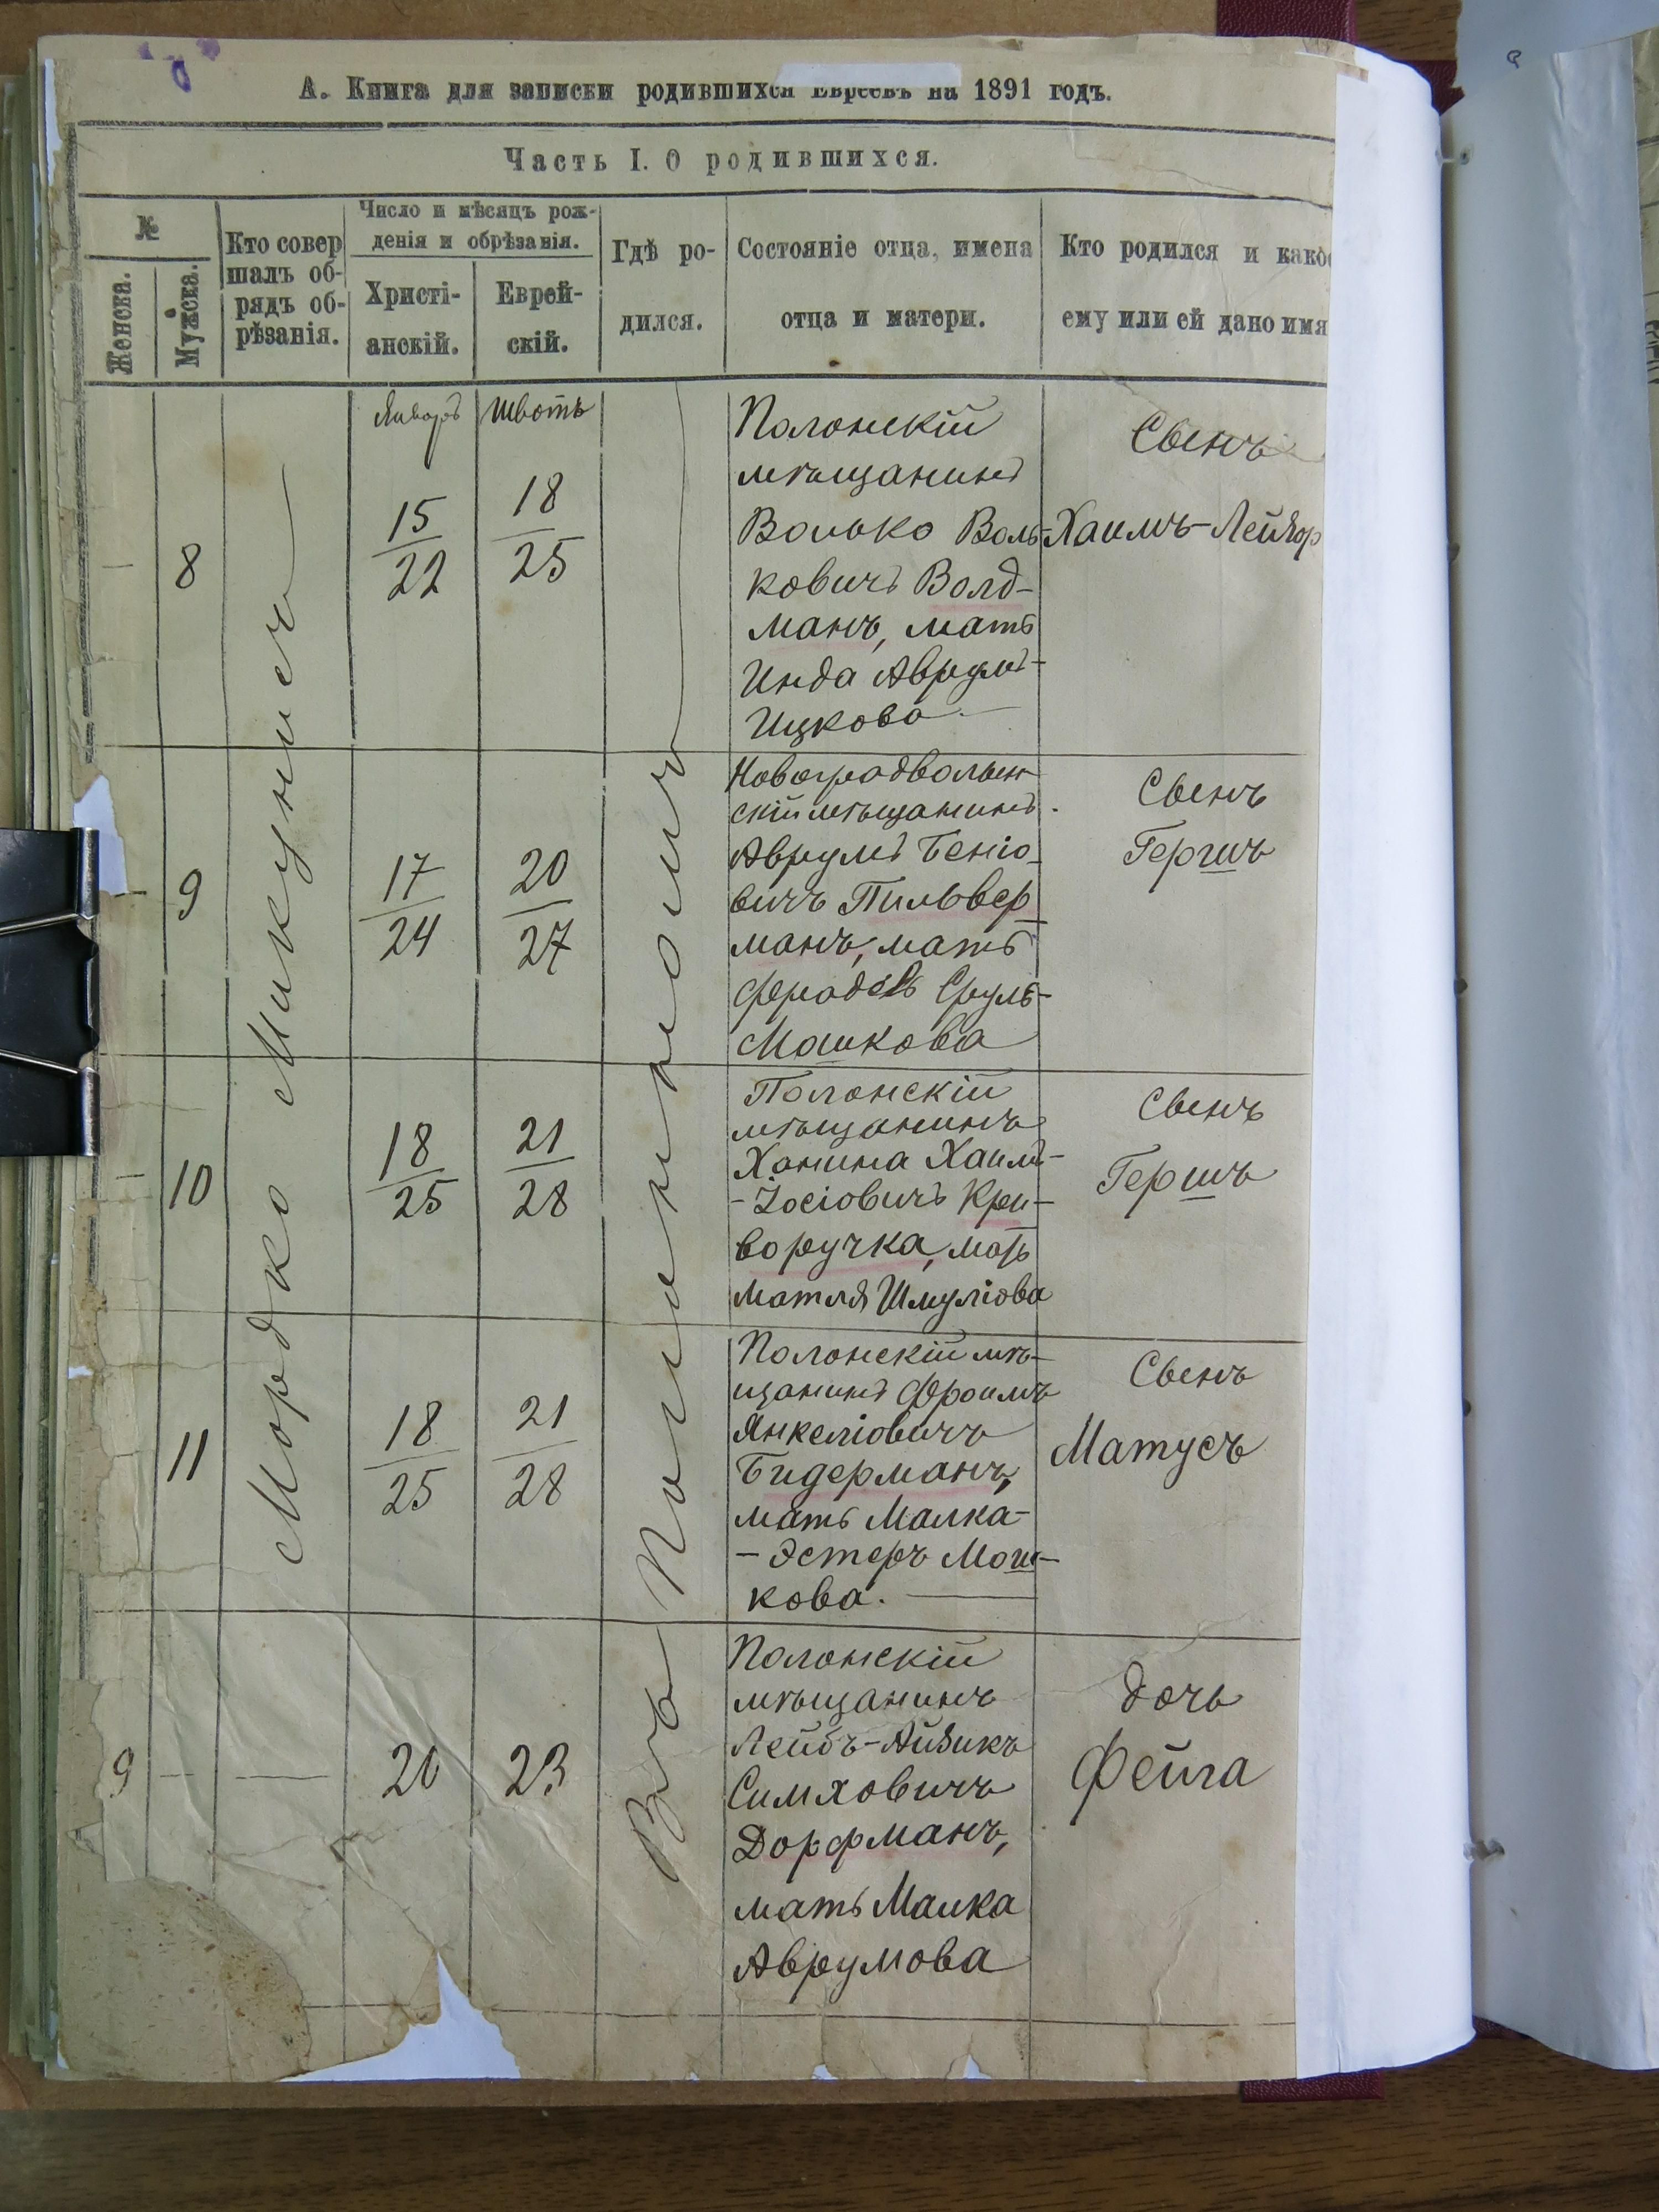 А. Книга для записки родившихся Евреевъ на 1891 годъ.
Часть I. О родившихся.
№
Женска.
Мужска.
Кто совер
шалъ об-
рядъ об-
рѣзанія.
Число и мѣсяцъ рож-
денія и обрѣзанія.
Христі-
анскій.
Еврей-
скій.
Гдѣ ро-
дился.
Состояніе отца, имена
отца и матери.
Кто родился и како
ему или ей дано имя
Январь
Шватъ
Мордко Микунисъ
Въ
8
15
22
18
25
Полонскій
мѣщанинъ
Волько Воль-
ковичъ Волд-
манъ, мать
Инда Аврумъ-
Ицкова
Сынъ
Хаимъ-Лейзор
9
17
24
20
27
Новоградволын
скій мѣщанинъ
Аврумъ Беніо-
вичъ Пильвер
манъ, мать
Фрадель Сруль-
Машкова
Сынъ
Гершъ
10
18
25
21
28
Полонскій
мѣщанинъ
Ханина Хаимъ-
-Іосіовичъ Кри-
воручка, мать
Матля Шмуліова
Сынъ
Гершъ
11
18
25
21
28
Полонскій мѣ-
щанинъ Фроимъ
Янкеліовичъ
Бидерманъ,
мать Малка-
-Эстеръ Мош-
кова.
Сынъ
Матусъ
9
20
23
Полонскій
мѣщанинъ
Лейбъ-Айзикъ
Симховичъ
Дорфманъ,
мать Малка
Аврумова
дочь
Фейга